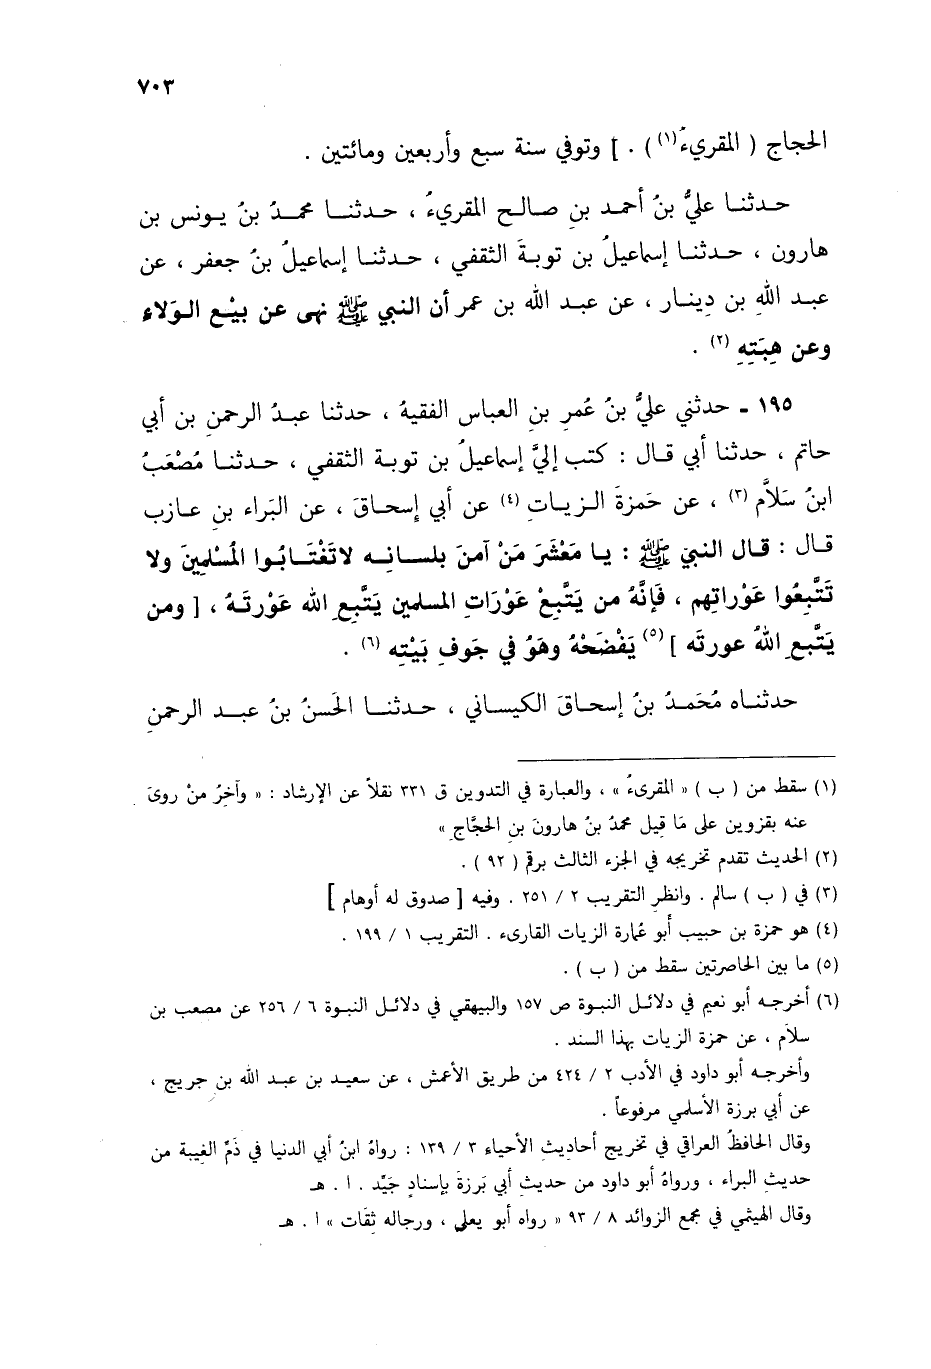 ٧٠٣
الحجاج ( المقريءُ(١) ) . ] وتوفي سنة سبع وأربعين ومائتين .
حدثنا عليُّ بنُ أحمد بنِ صالح المقريءُ ، حدثنا محمدُ بنُ يونس بن
هارون ، حدثنا إسماعيلُ بن توبةَ الثقفي ، حدثنا إسماعيلُ بنُ جعفر ، عن
عبد اللهِ بن دِينار ، عن عبد الله بن عمر أن النبي ﷺ نهى عن بيْع الوَلاءِ
وعن هِبَتِهِ (٢) .
١٩٥ ـ حدثني عليُّ بنُ عُمرِ بنِ العباس الفقيهُ ، حدثنا عبدُ الرحمنِ بن أبي
حاتم ، حدثنا أبي قال : كتب إليَّ إسماعيلُ بن توبة الثقفي ، حدثنا مُصْعَبُ
ابنُ سَلاَّم (٣) ، عن حَمزةَ الزيات (٤) عن أبي إسحاقَ ، عن البَراء بنِ عازب
قال : قال النبي ﷺ : يا مَعْشَرَ مَنْ آمنَ بلسانِه لاتَغْتَابُوا المُسْلِمِينَ ولا
تَتَّبِعُوا عَوْراتِهم ، فَإنَّهُ من يَتَّبِعْ عَوْرَاتِ المسلمين يَتَّبِعِ الله عَوْرتَهُ ، [ ومن
يَتَّبعِ اللهُ عورتَه ] (٥) يَفْضَحْهُ وهَوُ في جَوفِ بَيْتِه (٦) .
حدثناه مُحَمدُ بنُ إسحاقَ الكيساني ، حدثنا الحَسنُ بنُ عبد الرحمنِ
(١) سقط من ( ب ) « المقريءُ » ، والعبارة في التدوين ق ٣٣١ نقلاً عن الإرشاد : « وآخرُ منْ روىَ
عنه بقزوين على مَا قيل محمدُ بنُ هارونَ بنِ الحجَّاجِ »
(٢) الحديث تقدم تخريجه في الجزء الثالث برقم ( ٩٢ ) .
(٣) في ( ب ) سالم . وانظرِ التقريب ٢ / ٢٥١ . وفيه [ صدوق له أوهام ]
(٤) هو حمزة بن حبيب أبو عُمارة الزيات القارىء . التقريب ١ / ١٩٩ .
(٥) ما بين الحاصرتين سقط من ( ب ) .
(٦) أخرجه أبو نعيم في دلائل النبوة ص ١٥٧ والبيهقي في دلائل النبوة ٦ / ٢٥٦ عن مصعب بن
سلاَم ، عن حمزة الزيات بهذا السند .
وأخرجه أبو داود في الأدب ٢ / ٤٢٤ من طريق الأعمش ، عن سعيد بن عبد الله بن جريج ،
عن أبي برزة الأسلمي مرفوعاً .
وقال الحافظُ العراقي في تخريج أحاديثِ الأحياء ٣ / ١٣٩ : رواهُ ابنُ أبي الدنيا في ذَمِّ الغيبة من
حديثِ البراء ، ورواهُ أبو داود من حديثِ أبي بَرزةَ بإسنادٍ جَيِّد . ا . هـ
وقال الهيثمي في مجمع الزوائد ٨ / ٩٣ « رواه أبو يعلى ، ورجاله ثِقَات » ا . هـ